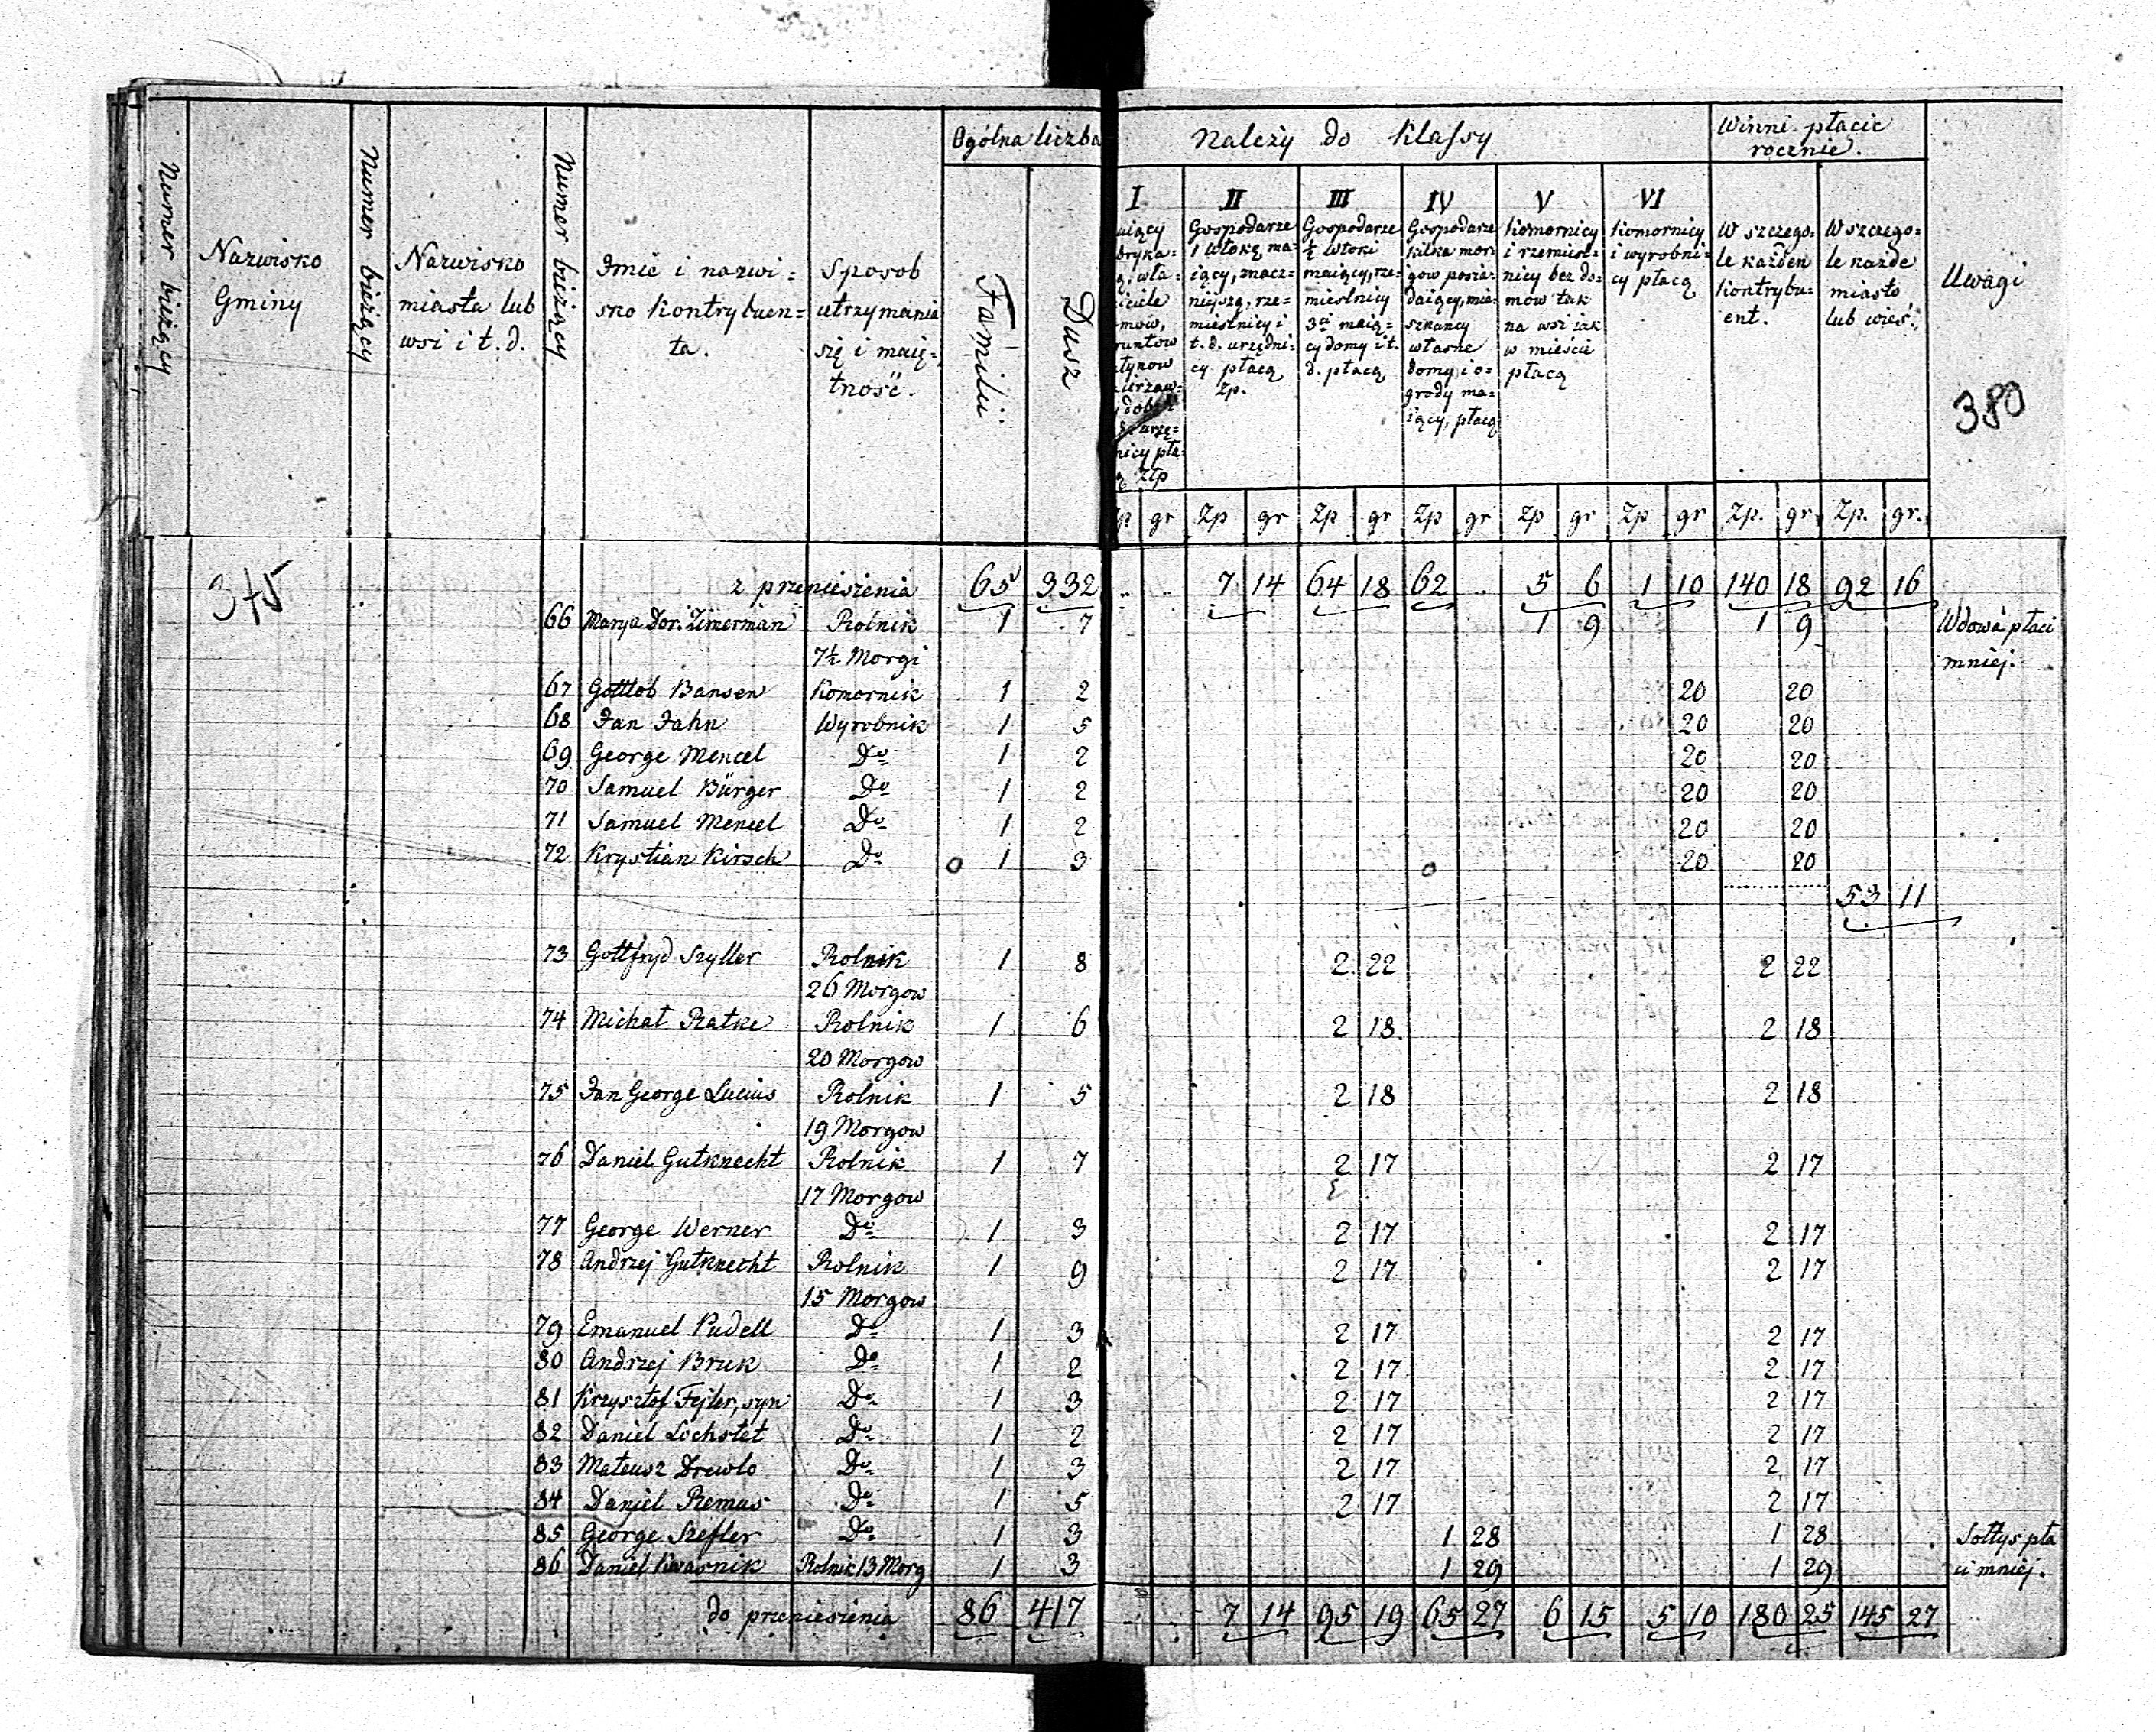 Ogólna liczba Należy do Klassy Winni płacić
rocznie.
Numer bieżący
Nazwisko
Gminy
Numer bieżący
Nazwisko
miasta lub
wsi i t. d.
Numer bieżący
Imie i nazwi=
sko kontrybuen=
ta.
Sposob
utrzymania
się i maię=
tność.
Familii
Dusz
I
II
Gospodarze
1 Włokę ma=
iący, znacz=
niejszą, rze=
mieślnicy i
t. d. urzędni=
cy płacą
Zp.
III
Gospodarze
½ Włoki
maiący, rze=
mieślnicy
3ci maią=
cy domy i t.
d. płacą
IV
Gospodarze
kilka mor=
gow posia=
daiący, mie=
szkancy
własne
domy i o=
grody ma=
iący, płacą
V
Komornicy
i rzemieśl=
nicy bez do=
mow tak
na wsi iak
w mieście
płacą
VI
Komornicy
i wyrobni=
cy płacą
W szczego=
le każden
Kontrybu=
ent.
W szczego=
le każde
miasto
lub wieś.
Uwagi
380
gr Zp gr Zp gr Zp gr Zp gr Zp gr Zp. gr Zp. gr.
345
z przeniesienia 65 332 .. .. 7 14 64 18 62 .. 5 6 1 10 140 18 92 16
66 Marya Dor. Zimerman Rolnik 1 7 1 9 1 9 Wdowa płaci
7½ Morgi mniej.
67 Gottlob Bansen Komornik 1 2 20 20
68 Jan Jahn Wyrobnik 1 5 20 20
69 George Mencel Do 1 2 20 20
70 Samuel Bürger Do 1 2 20 20
71 Samuel Mencel Do 1 2 20 20
72 Krystian Kirsch Do 1 3 20 20
53 11
73 Gottfryd Szyller Rolnik 1 8 2 22 2 22
26 Morgow
74 Michał Ratke Rolnik 1 6 2 18 2 18
20 Morgow
75 Jan George Lucius Rolnik 1 5 2 18 2 18
19 Morgow
76 Daniel Gutknecht Rolnik 1 7 2 17 2 17
17 Morgow
77 George Werner Do 1 3 2 17 2 17
78 Andrzej Gutknecht Rolnik 1 9 2 17 2 17
15 Morgow
79 Emanuel Pudell Do 1 3 2 17 2 17
80 Andrzej Bruk Do 1 2 2 17 2 17
81 Krzysztof Fejler, syn Do 1 3 2 17 2 17
82 Daniel Lochstet Do 1 2 2 17 2 17
83 Mateusz Drewlo Do 1 3 2 17 2 17
84 Daniel Remus Do 1 5 2 17 2 17
85 George Szefler Do 1 3 1 28 1 28 Sołtys pła
86 Daniel Kwasnik Rolnik 13 Morg 1 3 1 29 1 29 ci mniej.
do przeniesienia 86 417 7 14 95 19 65 27 6 15 5 10 180 25 145 27